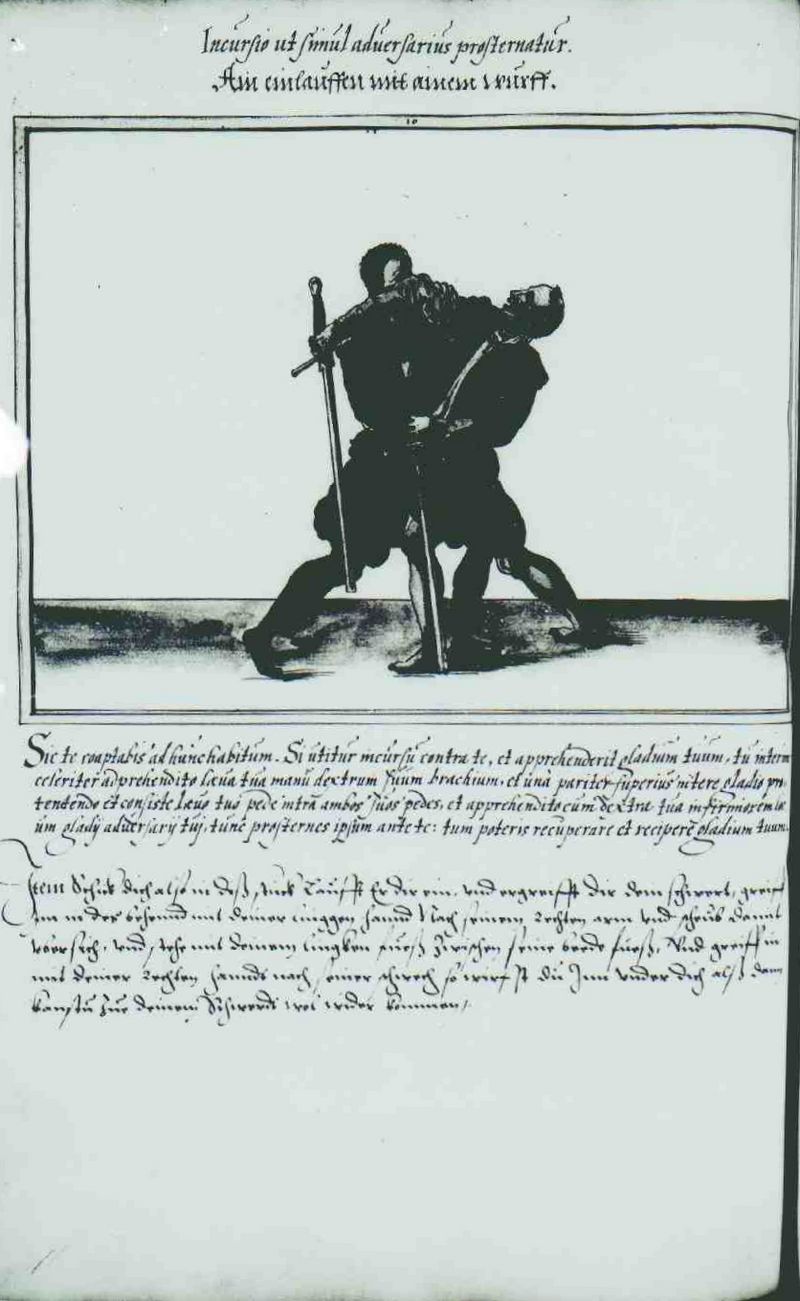 Incursio ut simul adversarius prosternatur.
Ain einlauffen mit ainem wurff.
10
Sic te coaptabis ad hunc habitum. Si utitur incursu contra te, et apprehenderit gladium tuum, tu interim
celeriter adprehendito laeva tua manu dextrum suum brachium, et una pariter superius nitere gladio pro=
tendendo et consiste laevo tuo pede intra ambos suos pedes, et apprehendito cum dextra tua infirmiorem lo
cum gladij adversarij tuj, tunc prosternes ipsum ante te: tum poteris recuperare et recipere gladium tuum.
Item Schick dich also in das stuck Laufft Er dir ein, und ergreifft dir dein schwert, greiff
im in der behennd mit deiner linggen hannd Nach seinem rechten arm und scheub damit
ubersich, und stehe mit deinem lingken fuesß zwischen seine beede fuesß, Und greiff im
mit deiner rechten hanndt nach seiner schwech so wirfst du Inn under dich alsß dann
kanstu zue deinem Schwerdt wol wider kommen,